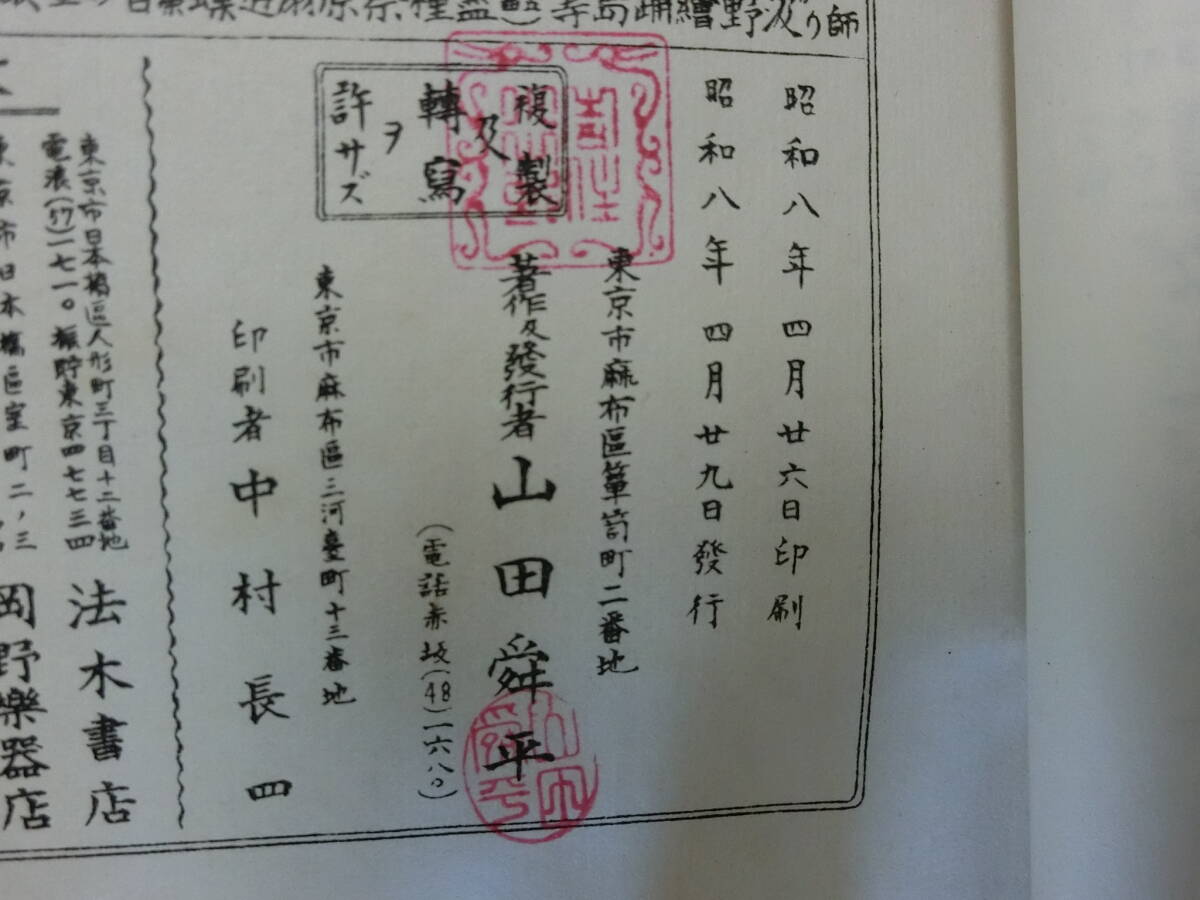 昭和八年四月廿六日印刷
昭和八年四月廿九日發行
複製
及
轉寫
ヲ
許サズ
東京市麻布區簞笥町二番地
著作及發行者 山田舜平
(電話赤坂(48)一六八〇)
東京市麻布區三河臺町十三番地
印刷者 中村長四
東京市日本橋區人形町三丁目十二番地
電浪(57)一七一〇 振貯東京四七七三四
法木書店
東京市日本橋區室町二ノ三
岡野樂器店